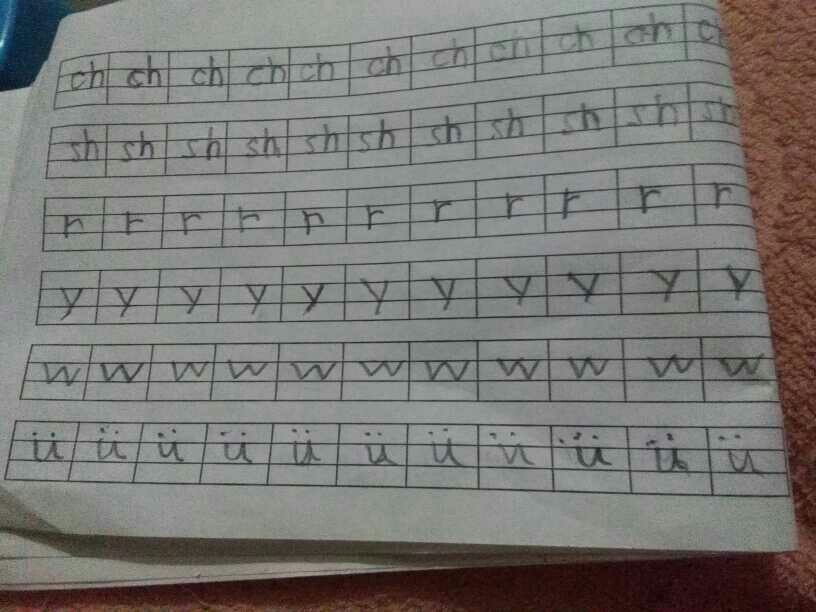 ch ch ch ch ch ch ch ch ch ch ch
sh sh sh sh sh sh sh sh sh sh sh
r r r r r r r r r r r
y y y y y y y y y y y
w w w w w w w w w w w
ü ü ü ü ü ü ü ü ü ü ü